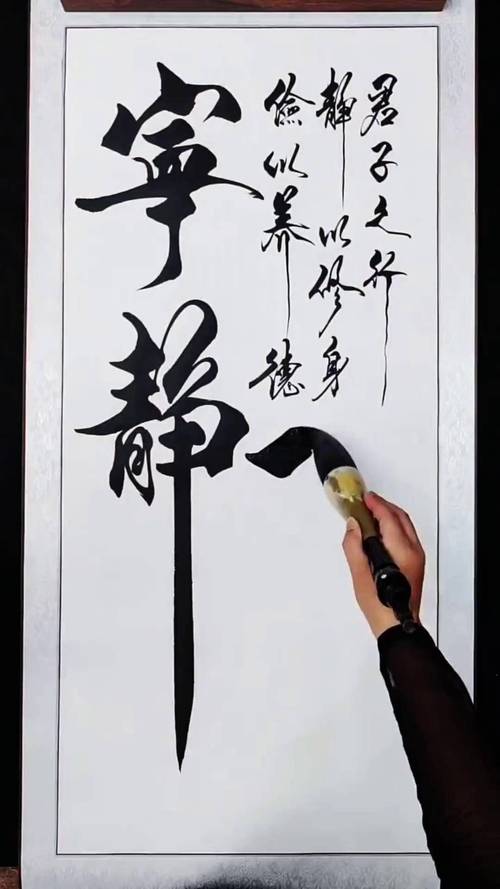 君子之行
静以修身
俭以养德
寧静